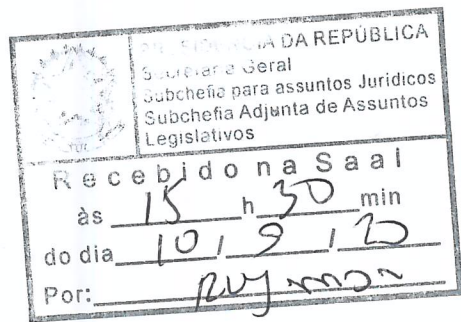 PRESIDÊNCIA DA REPÚBLICA
Secretaria Geral
Subchefia para assuntos Jurídicos
Subchefia Adjunta de Assuntos
Legislativos
Recebido na Saal
às 15 h 30 min
do dia 10 / 9 / 20
Por: